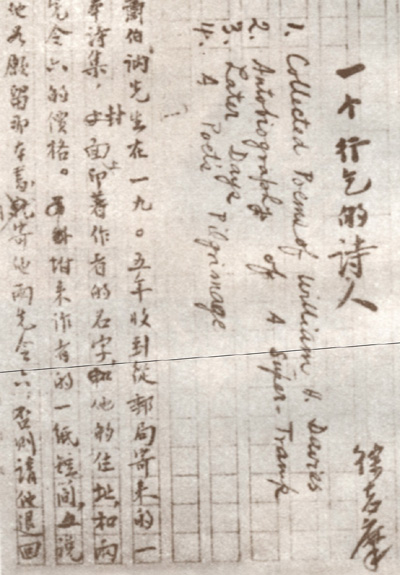 一个行乞的诗人
徐志摩
1. Collected Poems of William H. Davies
2. Autobiography of A Super-Tramp
3. Later Days
4. A Poet's Pilgrimage
蕭伯訥先生在一九〇五年收到從郵局寄來的一
本詩集，封面上印著作者的名字，他的住址，和兩
先令六的價格。附來作者的一紙短簡，說
他若願留那本書，寄他兩先令六，否則請他退回